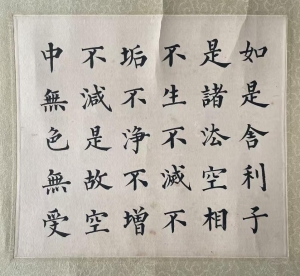 如是舍利子
是諸法空相
不生不滅不
垢不淨不增
不減是故空
中無色無受